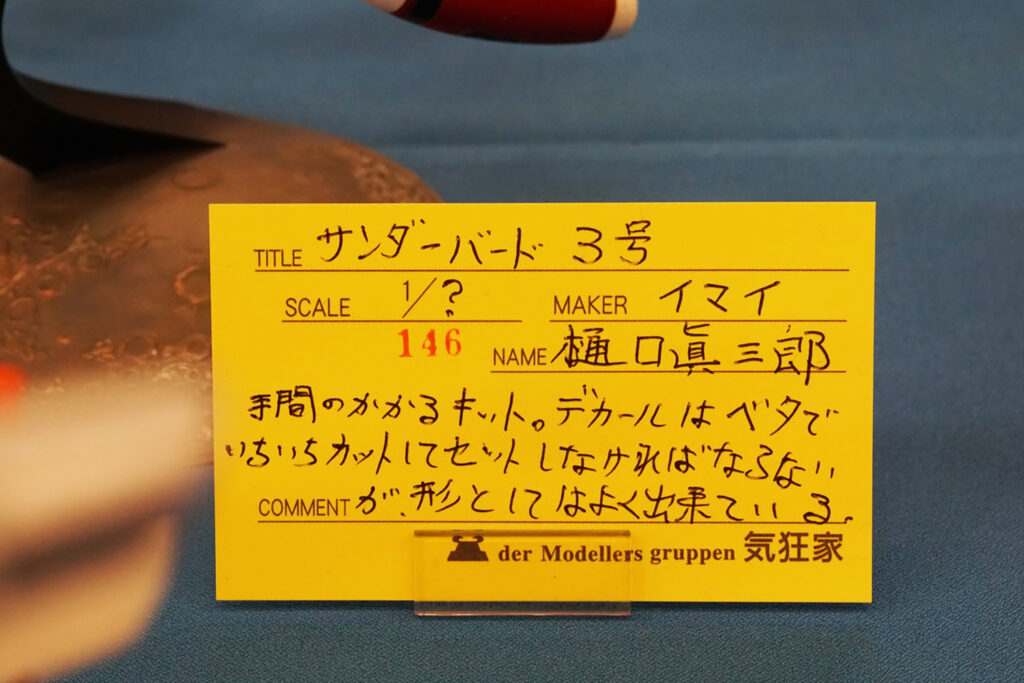 TITLE サンダーバード 3号
SCALE 1/? MAKER イマイ
146
NAME 樋口眞三郎
手間のかかるキット。デカールはベタで
いちいちカットしてセットしなければならない
COMMENT が、形としてはよく出来ている。
der Modellers gruppen 気狂家